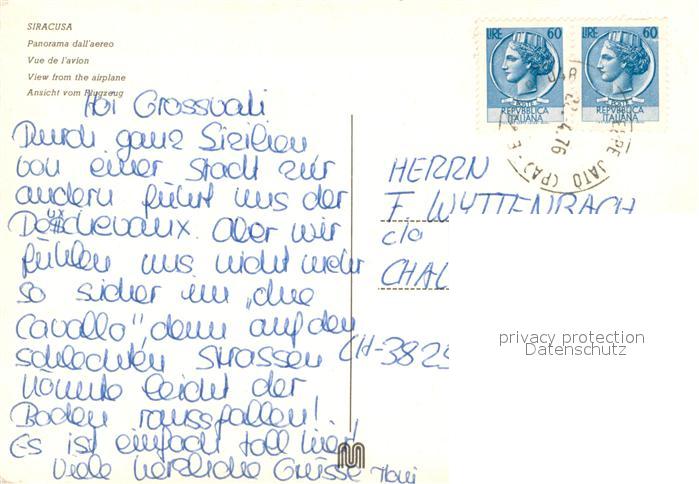 SIRACUSA
Panorama dall'aereo
Vue de l'avion
View from the airplane
Ansicht vom Flugzeug
Hoi Grossvati
Durch ganz Sizilien
von einer Stadt zur
andern führt uns der
Deuxchevaux. Aber wir
fühlen uns nicht mehr
so sicher im „due
Cavallo", denn auf den
schlechten Strassen
könnte leicht der
Boden rausfallen!
Es ist einfach toll hier!
Viele herzliche Grüsse
LIRE 60
POSTE
REPVBBLICA
ITALIANA
LIRE 60
POSTE
REPVBBLICA
ITALIANA
JATO (PA)
4.76
HERRN
F. WYTTENBACH
c/o
CHAL
CH-3825
privacy protection
Datenschutz